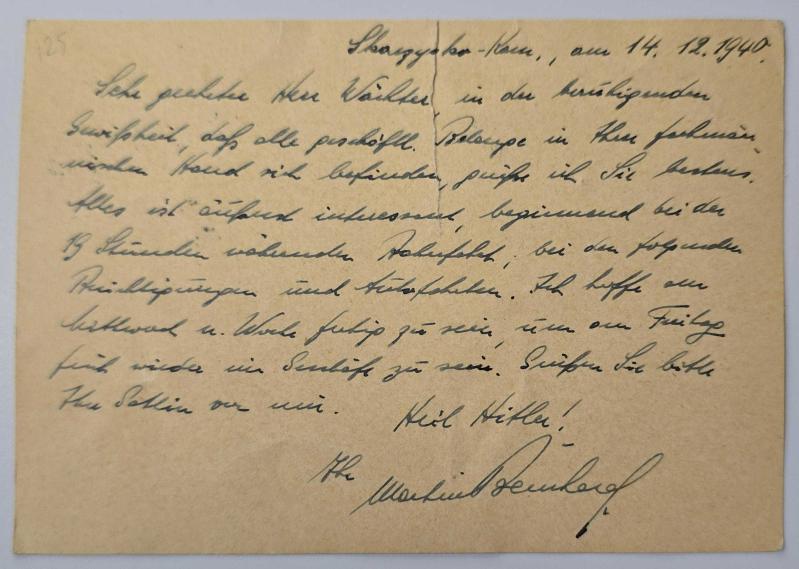 125
Skarzysko-Kam., am 14. 12. 1940.
Sehr geehrter Herr Wächter, in der beruhigenden
Gewißheit, daß alle geschäftl. Belange in Ihrer fachmän-
nischen Hand sich befinden, grüße ich Sie bestens.
Alles ist äußerst interessant, beginnend bei der
19 Stunden währenden Bahnfahrt, bei den folgenden
Besichtigungen und Autofahrten. Ich hoffe am
Mittwoch n. Woche fertig zu sein, um am Freitag
früh wieder im Geschäft zu sein. Grüßen Sie bitte
Ihre Gattin von mir.
Heil Hitler!
Ihr
Martin